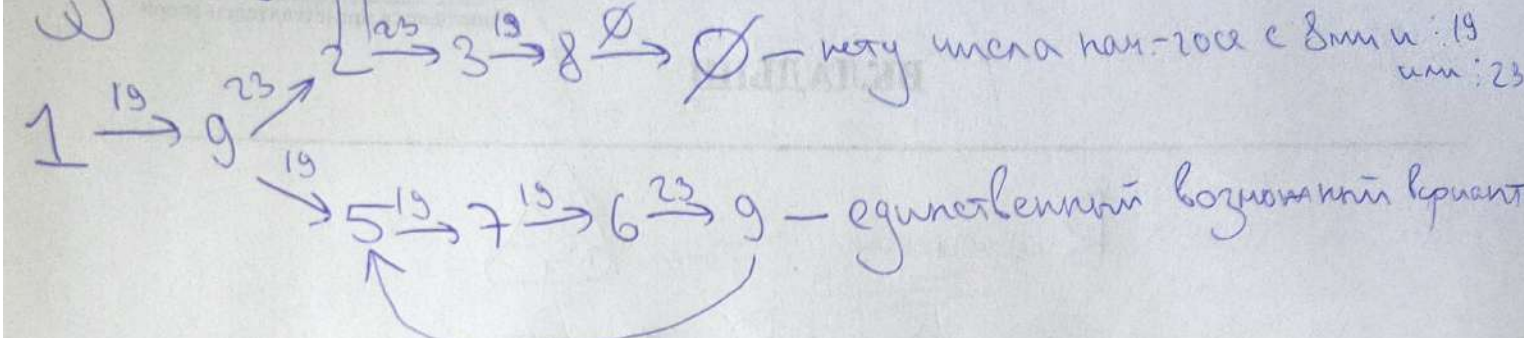 2 →23 3 →19 8 →∅ ∅ – нету числа нач-гося с 8ми и ⋮19
или ⋮23
1 →19 9 →23
→19 5 →19 7 →19 6 →23 9 – единственный возможный вариант